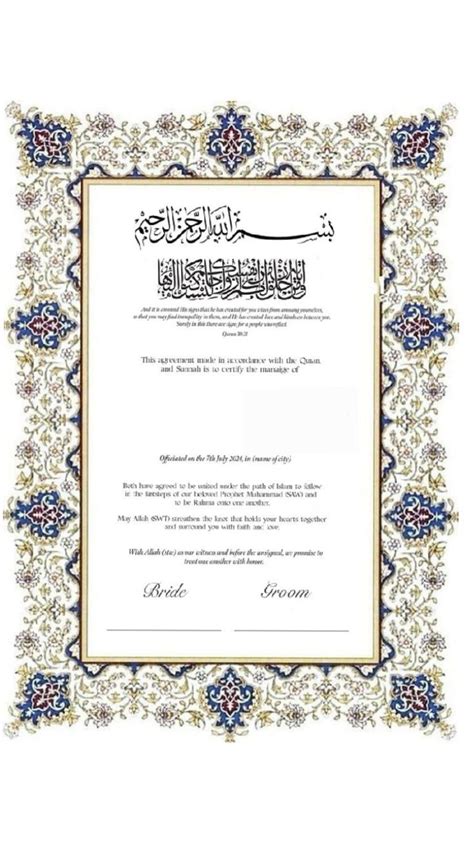 بسم الله الرحمن الرحيم
And it is among His signs that he has created for you wives from among yourselves,
so that you may find tranquility in them, and He has created love and kindness between you.
Surely in this there are signs for a people who reflect
Quran 30:21
This agreement made in accordance with the Quran
and Sunnah is to certify the marraige of
Officiated on the 7th July 2024, in (name of city)
Both have agreed to be united under the path of Islam to follow
in the footsteps of our beloved Prophet Muhammad (SAW) and
to be Rahma onto one another.
May Allah (SWT) strengthen the knot that holds your hearts together
and surround you with faith and love.
With Allah (stw) as our witness and before the assigned, we promise to
treat one another with honor.
Bride Groom